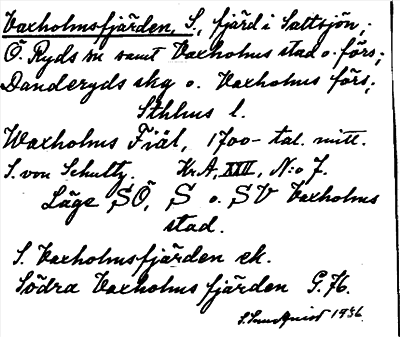 Vaxholmsfjärden, S., fjärd i Saltsjön;
Ö. Ryds sn samt Vaxholms stad o. förs;
Danderyds skg o. Vaxholms förs;
Sthlms l.
Waxholms Fiäl, 1700-tal. mitt.
S. von Schultz. Kr.A, XXII, N:o 7.
Läge SÖ, S o. SV Vaxholms
stad.
S. Vaxholmsfjärden ek.
Södra Vaxholmsfjärden G.76.
S. Sundqvist 1936.